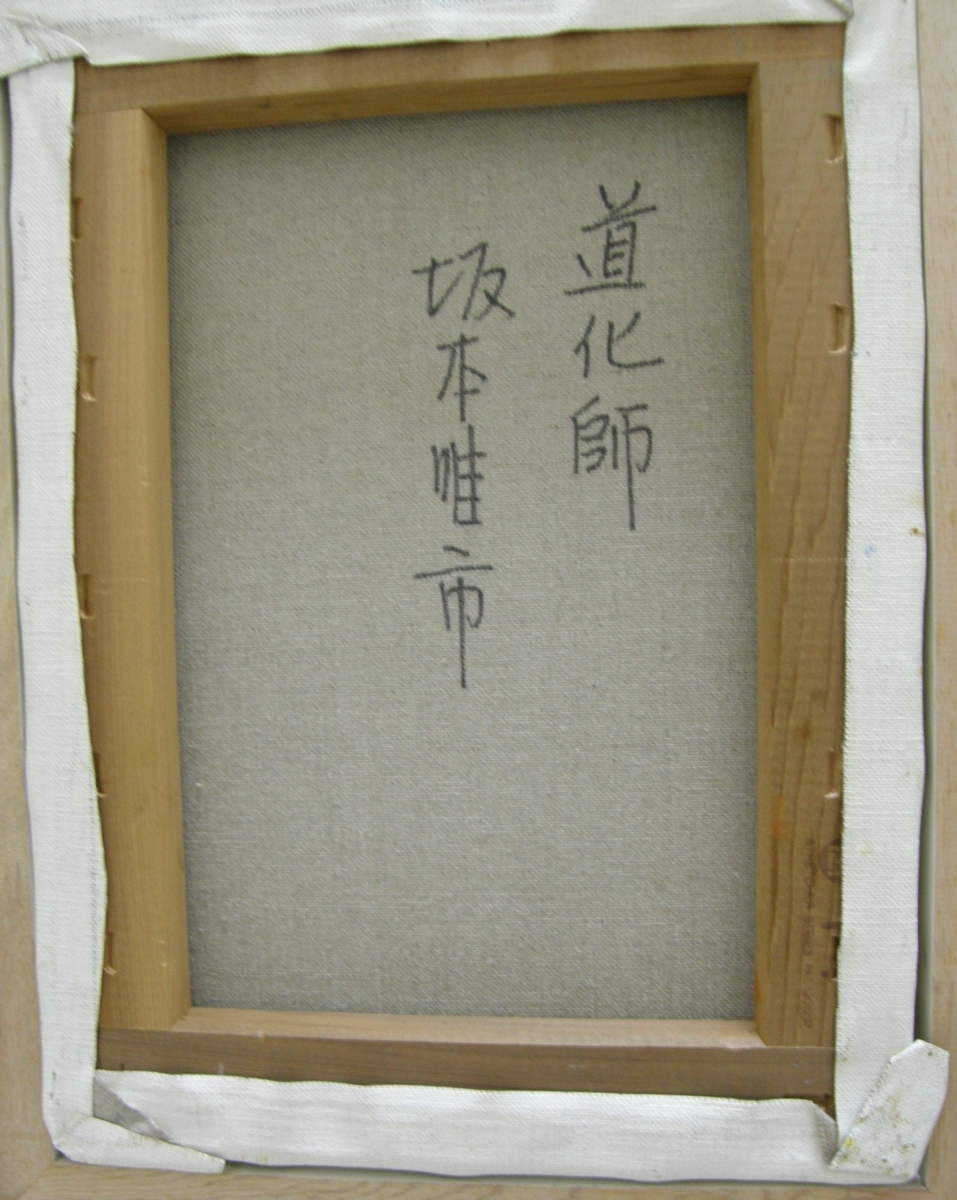 道化師
坂本惟市